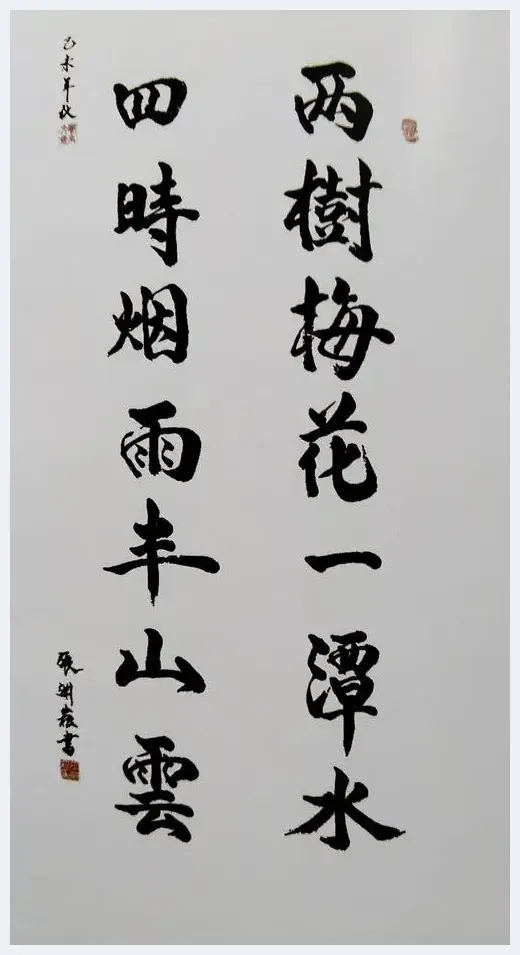 两樹梅花一潭水
四時烟雨半山雲
乙未年秋
張書